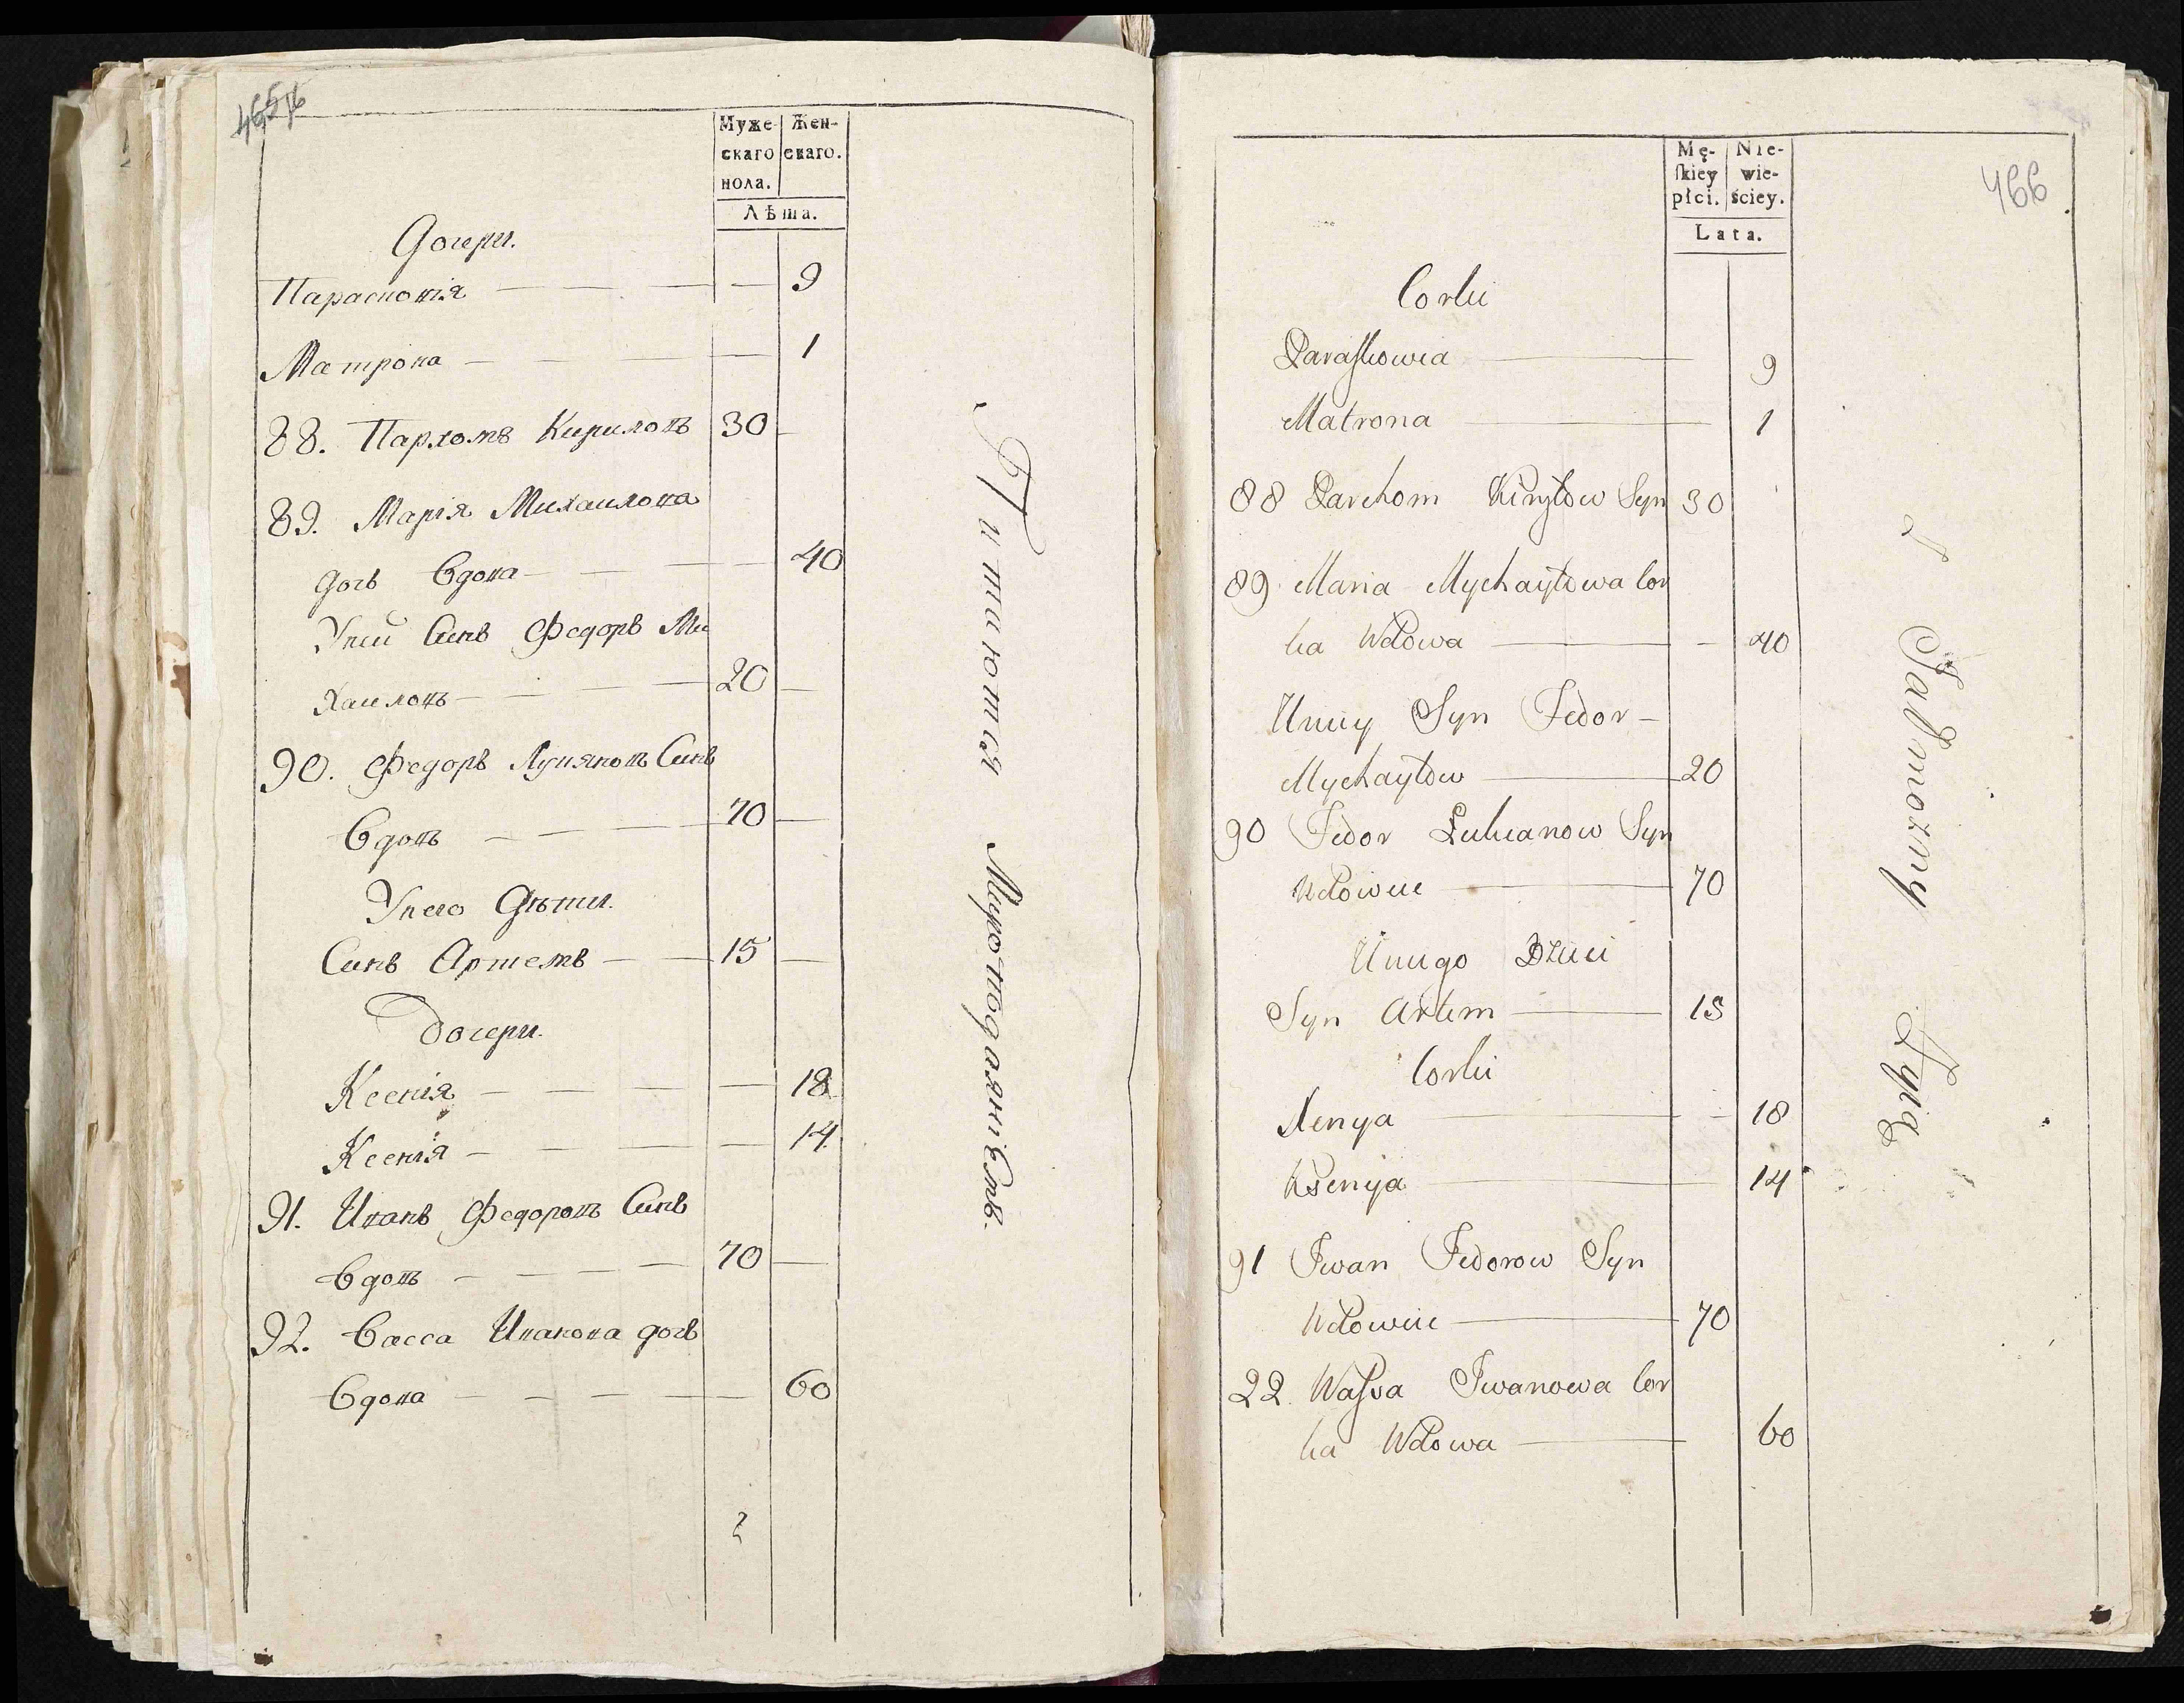 Муже- Жен-
скаго скаго.
пола.
Лѣта.
Дочери.
Парасковія — — — — 9
Матрона — — — 1
88. Пархомъ Кириловъ 30 —
89. Марія Михаилова
дочь Вдова — — — — 40
У ней Синъ Федоръ Ми
хаиловъ — — — — 20 —
90. Федоръ Лукяновъ Синъ
Вдовъ — — — 70 —
У него Дѣти.
Синъ Артемъ — — 15 —
Дочери.
Ксенія — — — — — 18
Ксенія — — — — — 14
91. Иванъ Федоровъ Синъ
Вдовъ — — — — 70 —
92. Васса Иванова дочь
Вдова — — — — — 60
Питаются Мироподаяніемъ.
Mę- Nie-
ſkiey wie-
płci. ściey.
Lata.
466
Corki
Paraſkowia — 9
Matrona — 1
88 Parchom Kiryłow Syn 30
89 Maria Mychayłowa Cor
ka Wdowa — — 40
U niey Syn Fedor —
Mychayłow — 20
90 Fedor Lukianow Syn
Wdowiec — 70
U niego Dzieci
Syn Artem — 15
Corki
Xenya — — 18
Ksenija — 14
91 Iwan Fedorow Syn
Wdowiec — 70
22. Waſsa Iwanowa Cor
ka Wdowa — 60
z Jałmużny Żyią